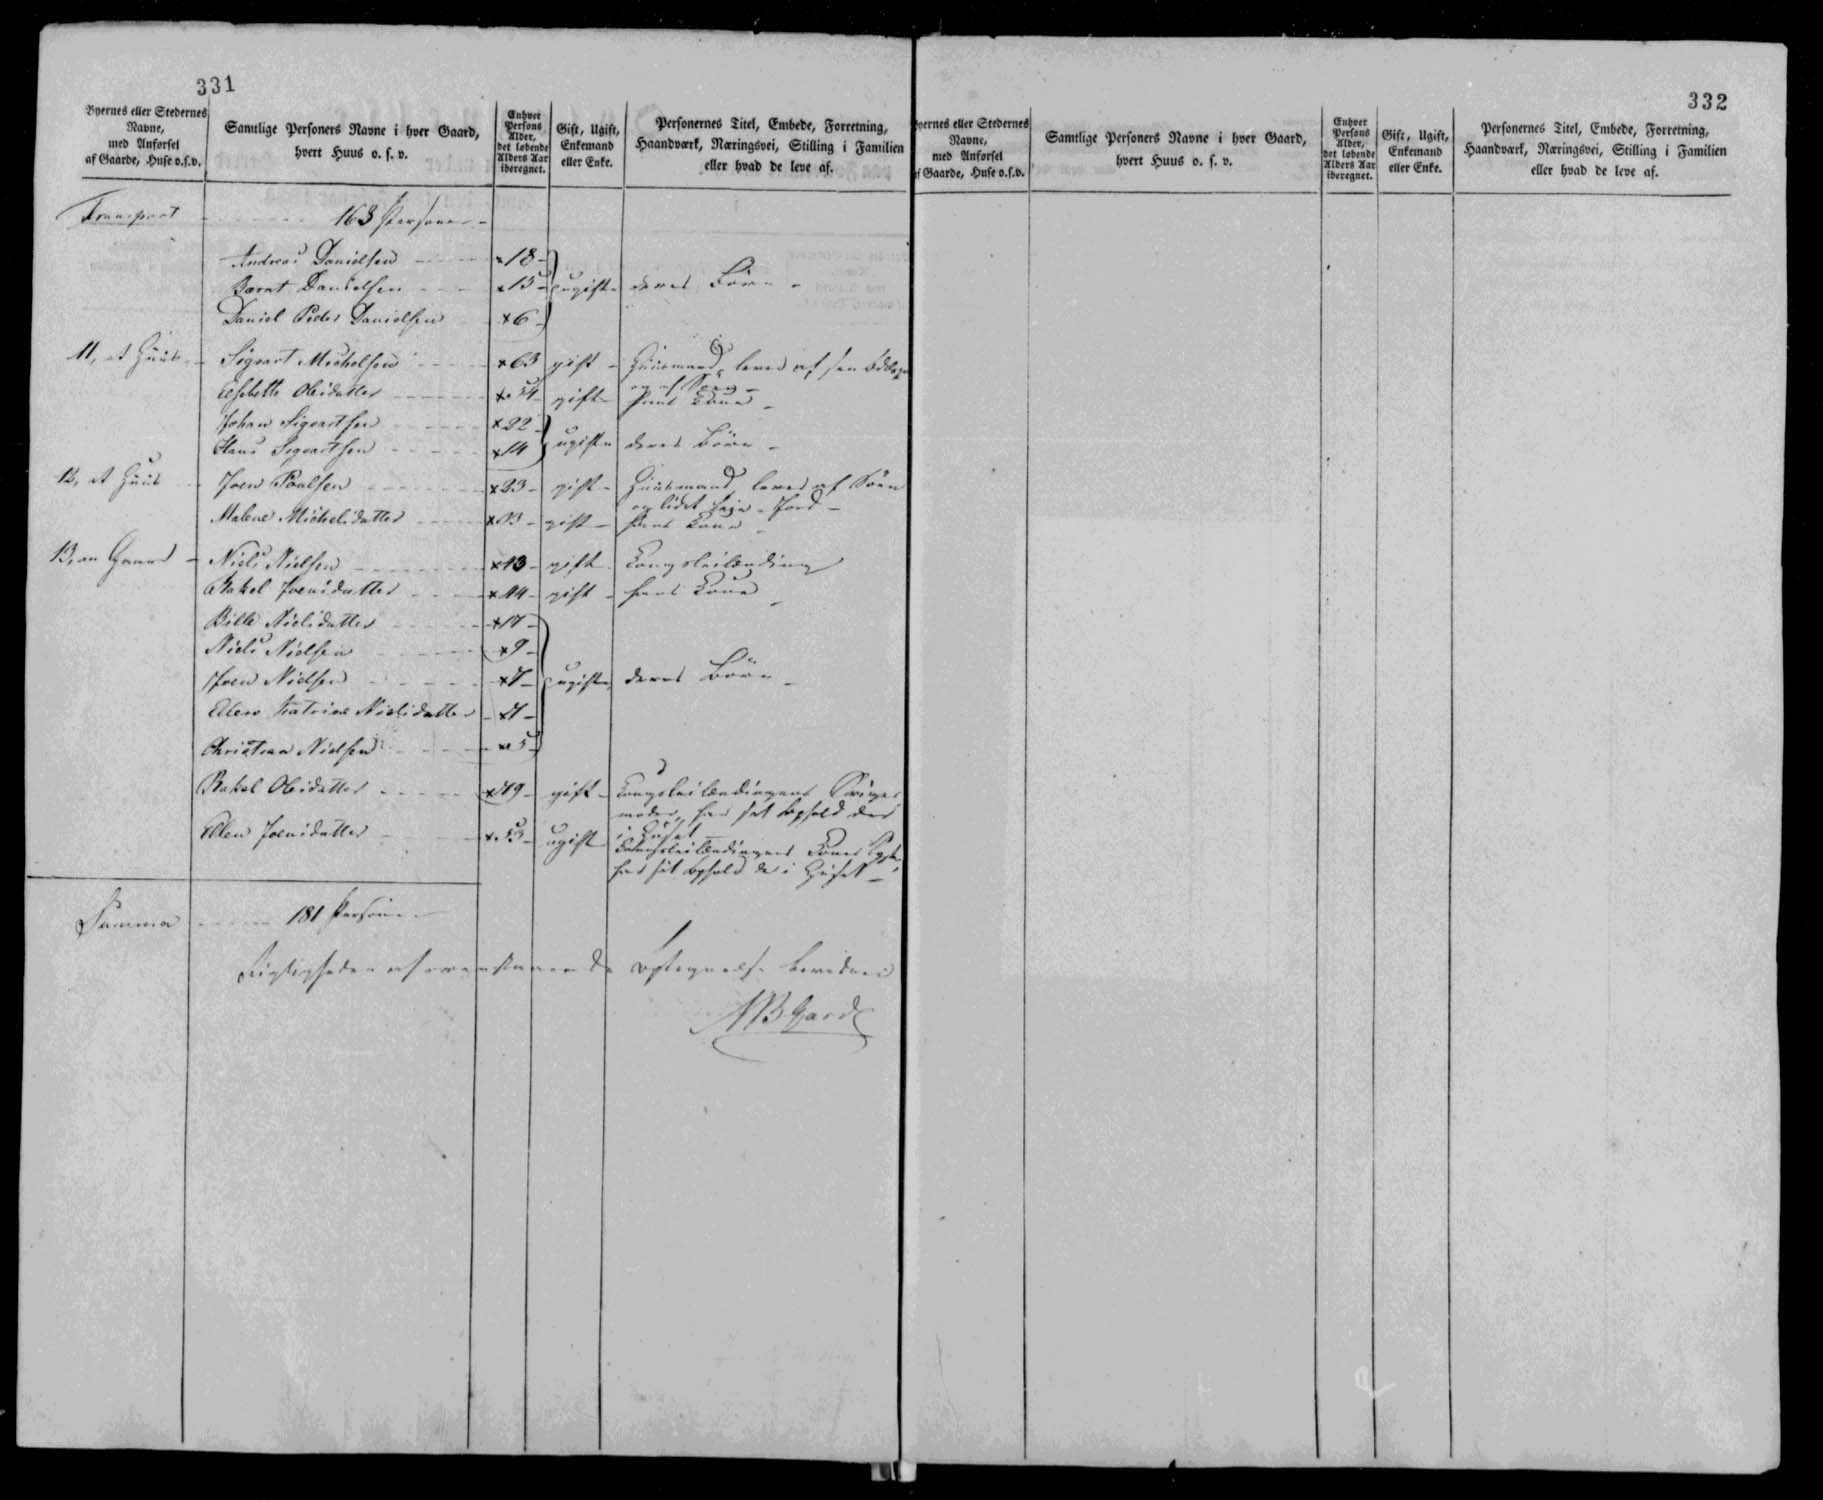 331
Byernes eller Stedernes Navne, med Anførsel af Gaarde, Huse o.s.v.
Samtlige Personers Navne i hver Gaard, hvert Huus o. s. v.
Enhver Persons Alder, det løbende Alders Aar iberegnet.
Gift, Ugift, Enkemand eller Enke.
Personernes Titel, Embede, Forretning, Haandværk, Næringsvei, Stilling i Familien eller hvad de leve af.
Transport 163 Personer
Andreas Danielsen 18
Barnt Danielsen 15 ugifte deres Børn
Daniel Peder Danielsen 6
11, et Huus Sigvart Michelsen 63 gift Huusmand, lever af sin
og af
Elsebeth Olisdatter 54 gift hans Kone
Johan Sigvartsen 22
Hans Sigvartsen 14 ugifte deres Børn
12, et Huus Joen Poulsen 23 gift Huusmand, lever af Søen
og lidet Jord
Malene Michelsdatter gift hans Kone
13, en Gaard Niels Nielsen 43 gift Kongsleilænding
Rakel Joensdatter 44 gift hans Kone
Bille Nielsdatter 17
Niels Nielsen 9
Joen Nielsen 7 ugifte deres Børn
Ellen Katrine Nielsdatter
Christian Nielsen 5
Rakel Olisdatter 79 gift Kongsleilændingens Sviger
moder, har sit Ophold der
i Huset
Ellen Joensdatter 53 ugift Kongsleilændingens Kones Syster,
har sit Ophold der i Huset
Summa 181 Personer
Rigtigheden af ovenstaaende Optegnelse bevidnes
332
Byernes eller Stedernes Navne, med Anførsel af Gaarde, Huse o.s.v.
Samtlige Personers Navne i hver Gaard, hvert Huus o. s. v.
Enhver Persons Alder, det løbende Alders Aar iberegnet.
Gift, Ugift, Enkemand eller Enke.
Personernes Titel, Embede, Forretning, Haandværk, Næringsvei, Stilling i Familien eller hvad de leve af.